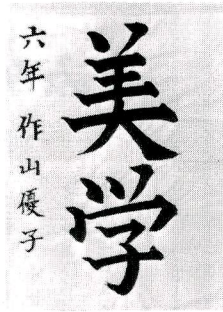 美学
六年 作山優子